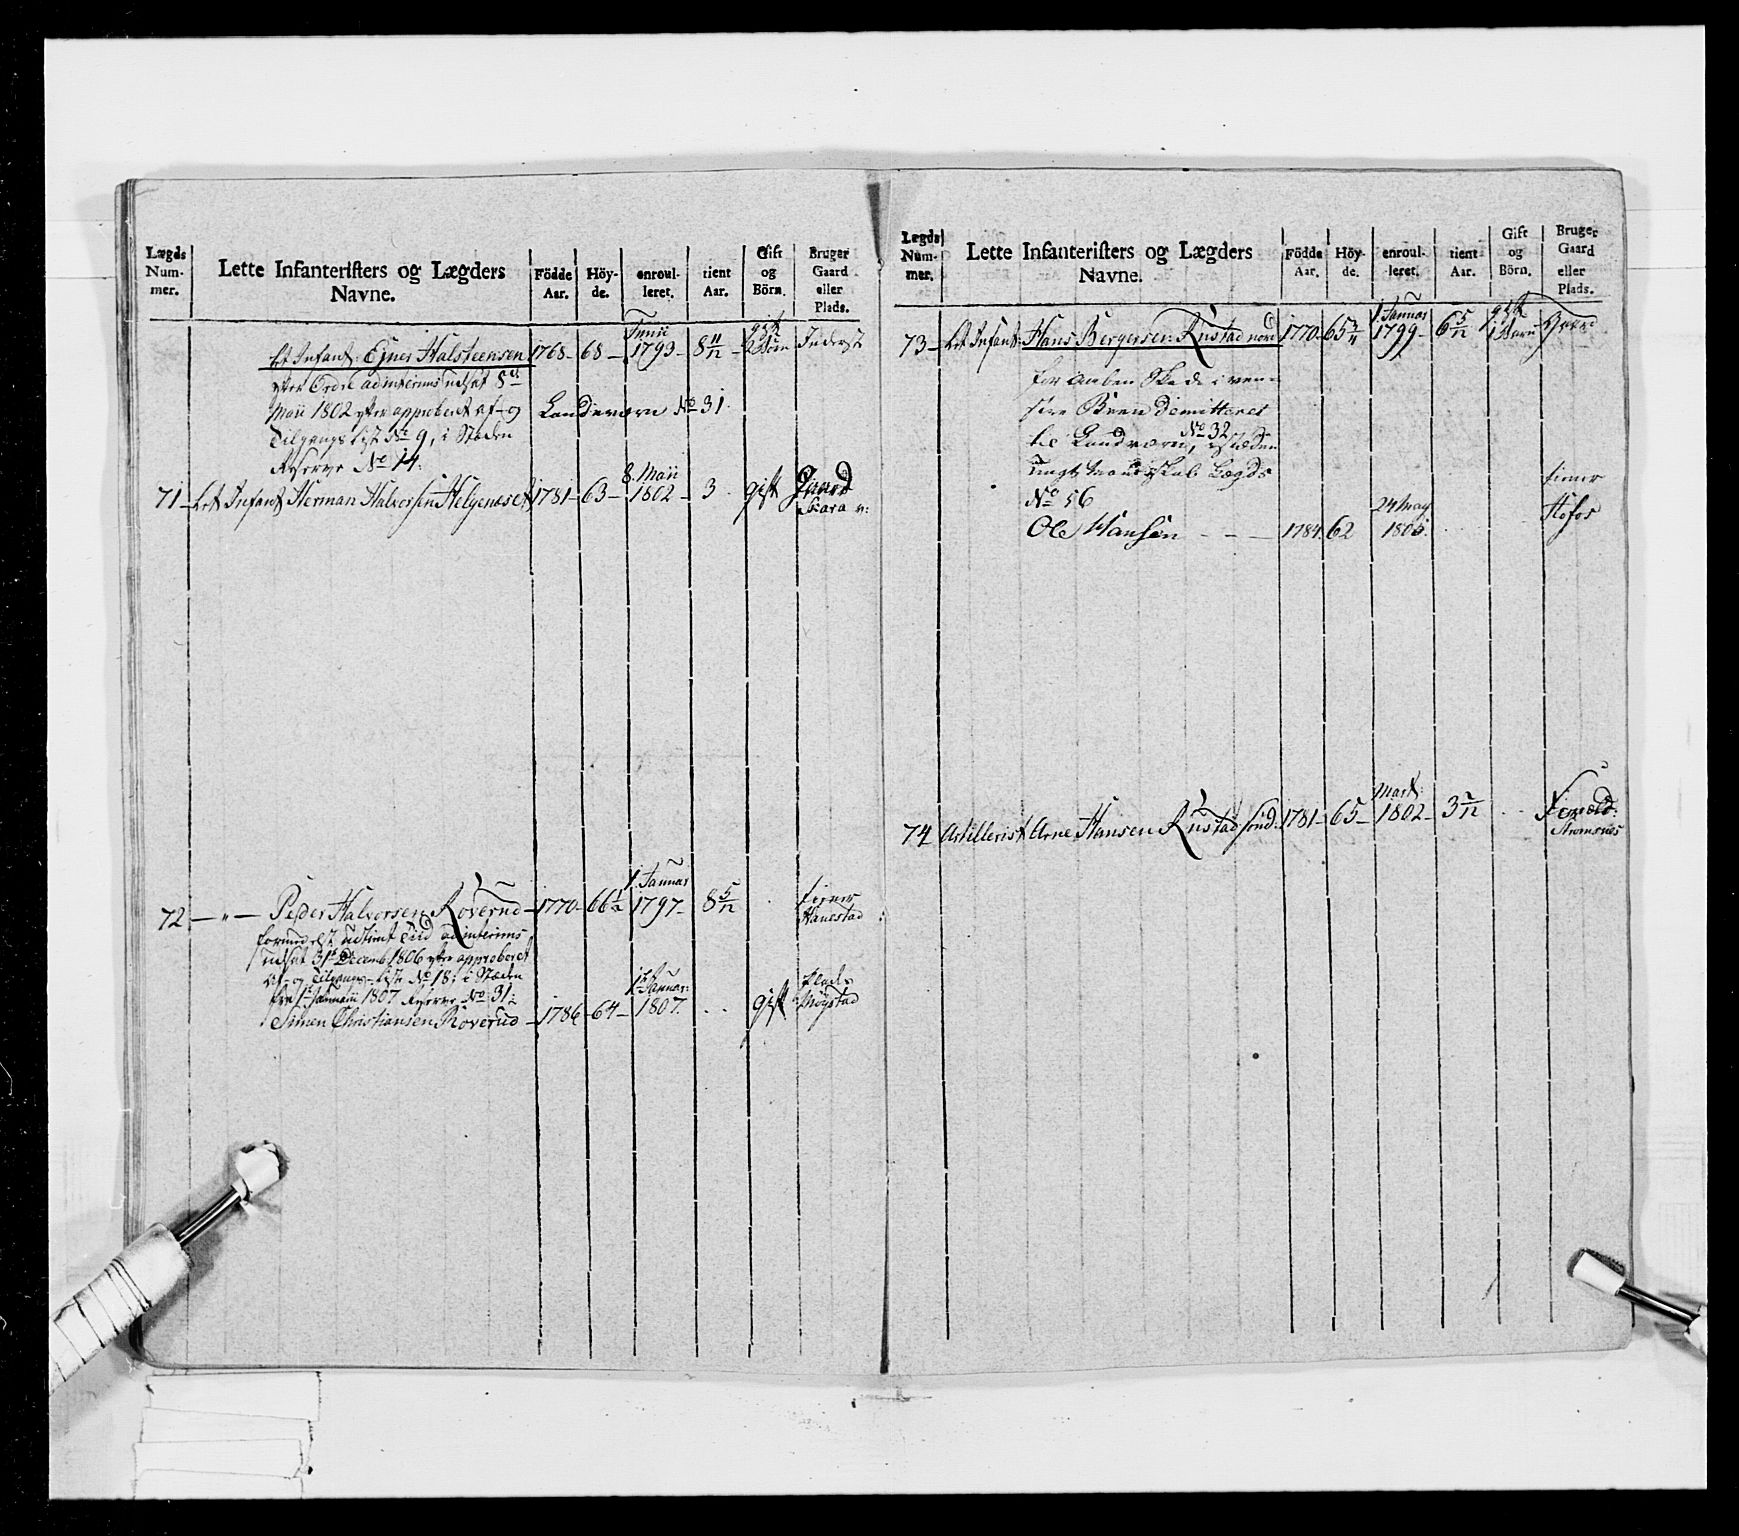 Lægds Num- mer.
Lette Infanteristers og Lægders Navne.
Födde Aar.
Höy- de.
enroul- leret.
tient Aar.
Gift og Börn.
Bruger Gaard eller Plads.
Let Infant: Ejner Halsteensen 1768 - 68 - Junii 1793 - 8 11/12 - gift 2 Börn Inderst
efter Ordre adinterims udsat 8de
Maii 1802 efter approberet af- og Landeværn No 31.
Tilgangs List No 9, i Stæden
Reserve No 14.
71 - Let Infant Herman Halvorsen Helgenæset 1781 - 63 - 8. Maii 1802 - 3 gift Gaard
72 - " - Peder Halvorsen Roverud - 1770 - 66 1/2 1. Januar 1797 - 8 5/12 tiener Hanestad
formedelst udtient Tiid adinterims
udsat 31te Decemb. 1806 efter approberet
Af- og Tilgangs-Liste No 18; i Stæden
fra 1te Januarii 1807 Reserve No 31:
Simen Christiansen Roverud - 1786 - 64 - 1te Januar: 1807. gift Plads Möystad
Lægds Num- mer.
Lette Infanteristers og Lægders Navne.
Födde Aar.
Höy- de.
enroul- leret.
tient Aar.
Gift og Börn.
Bruger Gaard eller Plads.
73 - Let Infant: Hans Bergersen Rustad nord 1770 - 65 3/4 1. Januar 1799 - 6 5/12 gift 1 Barn
for aaben Skade i ven-
stre Been Demitteret
til Landværn, No 32 i Stæden
ungt Mandskab Lægds
No 56
Ole Hansen - - - 1784. 62 24 May 1805. tiener Hofos
74 Artillerist Arne Hansen Rustad sönd: 1781 - 65 - Mart: 1802 - 3 2/12 Strömsnes